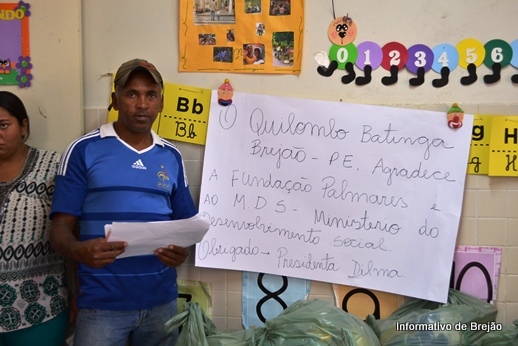 NDO
0 1 2 3 4 5 6
Bb
Bb
O Quilombo Batinga
Brejão - P.E. Agradece
A Fundação Palmares e
AO M.D.S - Ministerio do
Desenvolvimento Social
Obrigado - Presidenta Dilma
g
H
8
Informativo de Brejão